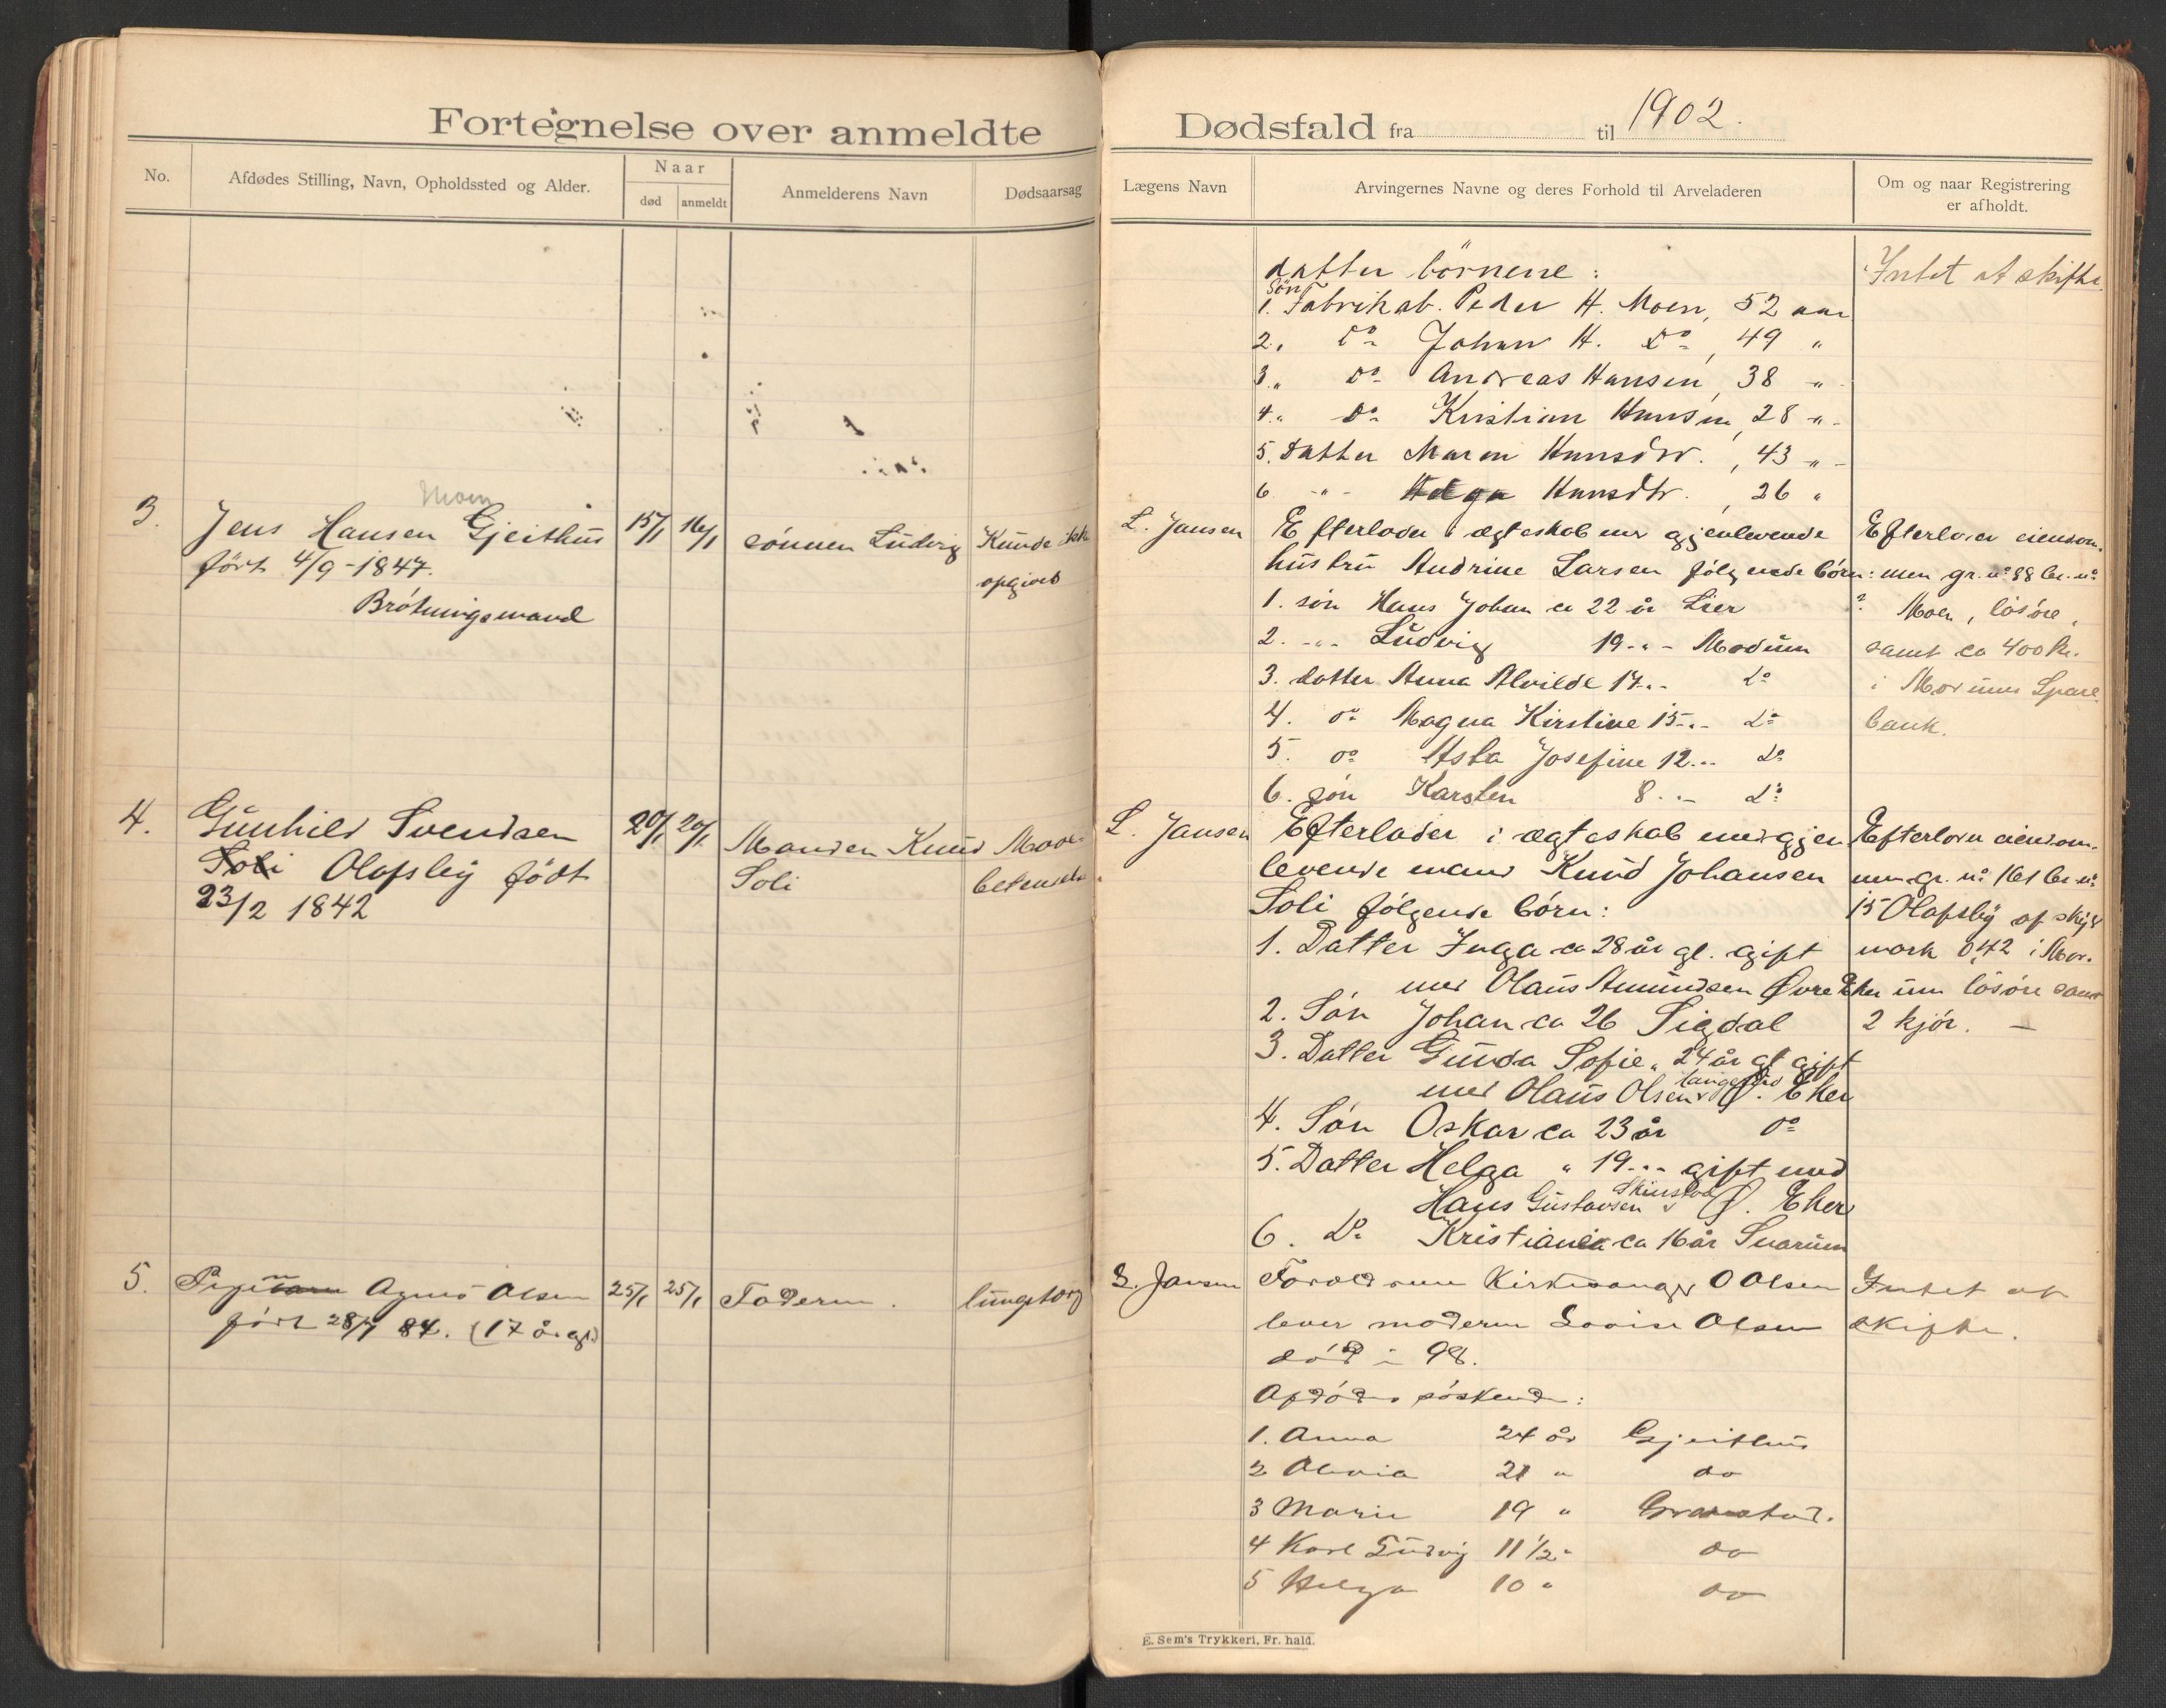 Fortegnelse over anmeldte
No.
Afdødes Stilling, Navn, Opholdssted og Alder.
Naar
død
anmeldt
Anmelderens Navn
Dødsaarsag
Moen
3.
Jens Hansen Gjeithus
15/1
16/1
sønnen Ludvig
Kunde ikke
født 4/9-1847.
opgives
Brøtningsmand
4.
Gunhild Svendsen
20/1
20/1
Manden Knud
Soli
Soli Olafsby født
23/2 1842
5.
Agnes Olsen
25/1
25/1
Faderen.
født 28/7 84. (17 år gl.)
Dødsfald fra til 1902.
Lægens Navn
Arvingernes Navne og deres Forhold til Arveladeren
Om og naar Registrering
er afholdt.
datter börnene:
Intet at skifte.
Sön
1. Fabrikab. Peder H. Moen, 52 aar
2. Do Johan H. Do, 49 "
3. " Do Andreas Hansen, 38 "
4. " Do Kristian Hansen, 28 "
5. Datter Maren Hansdtr., 43 "
6. " Helga Hansdtr., 26 "
L. Jansen
Efterlader i ægteskab med gjenlevende
Efterlader eiendom-
hustru Andrine Larsen følgende børn:
men gr. no 88 br. no
1. søn Hans Johan ca 22 år Lier
? Moen, løsøre,
2. " Ludvig 19 " Modum
samt ca 400 kr.
3. datter Anna Alvilde 17 " do
i Modums Spare
4. do Magna Kirstine 15 " do
bank.
5. do Asta Josefine 12 " do
6. søn Karsten 8 " do
L. Jansen
Efterlader i ægteskab med gjen
Efterlader eiendom-
levende mand Knud Johansen
men gr. no 161 br. no
Soli følgende børn:
15 Olafsby af skyld
1. Datter Inga ca 28 år gl. gift
mark 0,42 i Mod-
med Olaus Amundsen Øvre Eker
um løsøre samt
2. Søn Johan ca 26 Sigdal
2 kjør. —
3. Datter Gunda Sofie " 24 år gl gift
med Olaus Olsen Ø. Eker
4. Søn Oskar ca 23 år do
5. Datter Helga " 19 " gift med
Hans Gustavsen Ø. Eker
6. Do Kristiania ca 16 år Snarum
L. Jansen
Forældrene Kirkesanger O Olsen
Intet at
lever moderen Lovise Olsen
skifte.
død i 98.
Afdødes søskende:
1. Anna 24 år Gjeithus
2 Olovia 21 " do
3 Marie 19 "
4 Karl Ludvig 11 1/2 " do
5 Helga 10 " do
E. Sem's Trykkeri, Fr. hald.